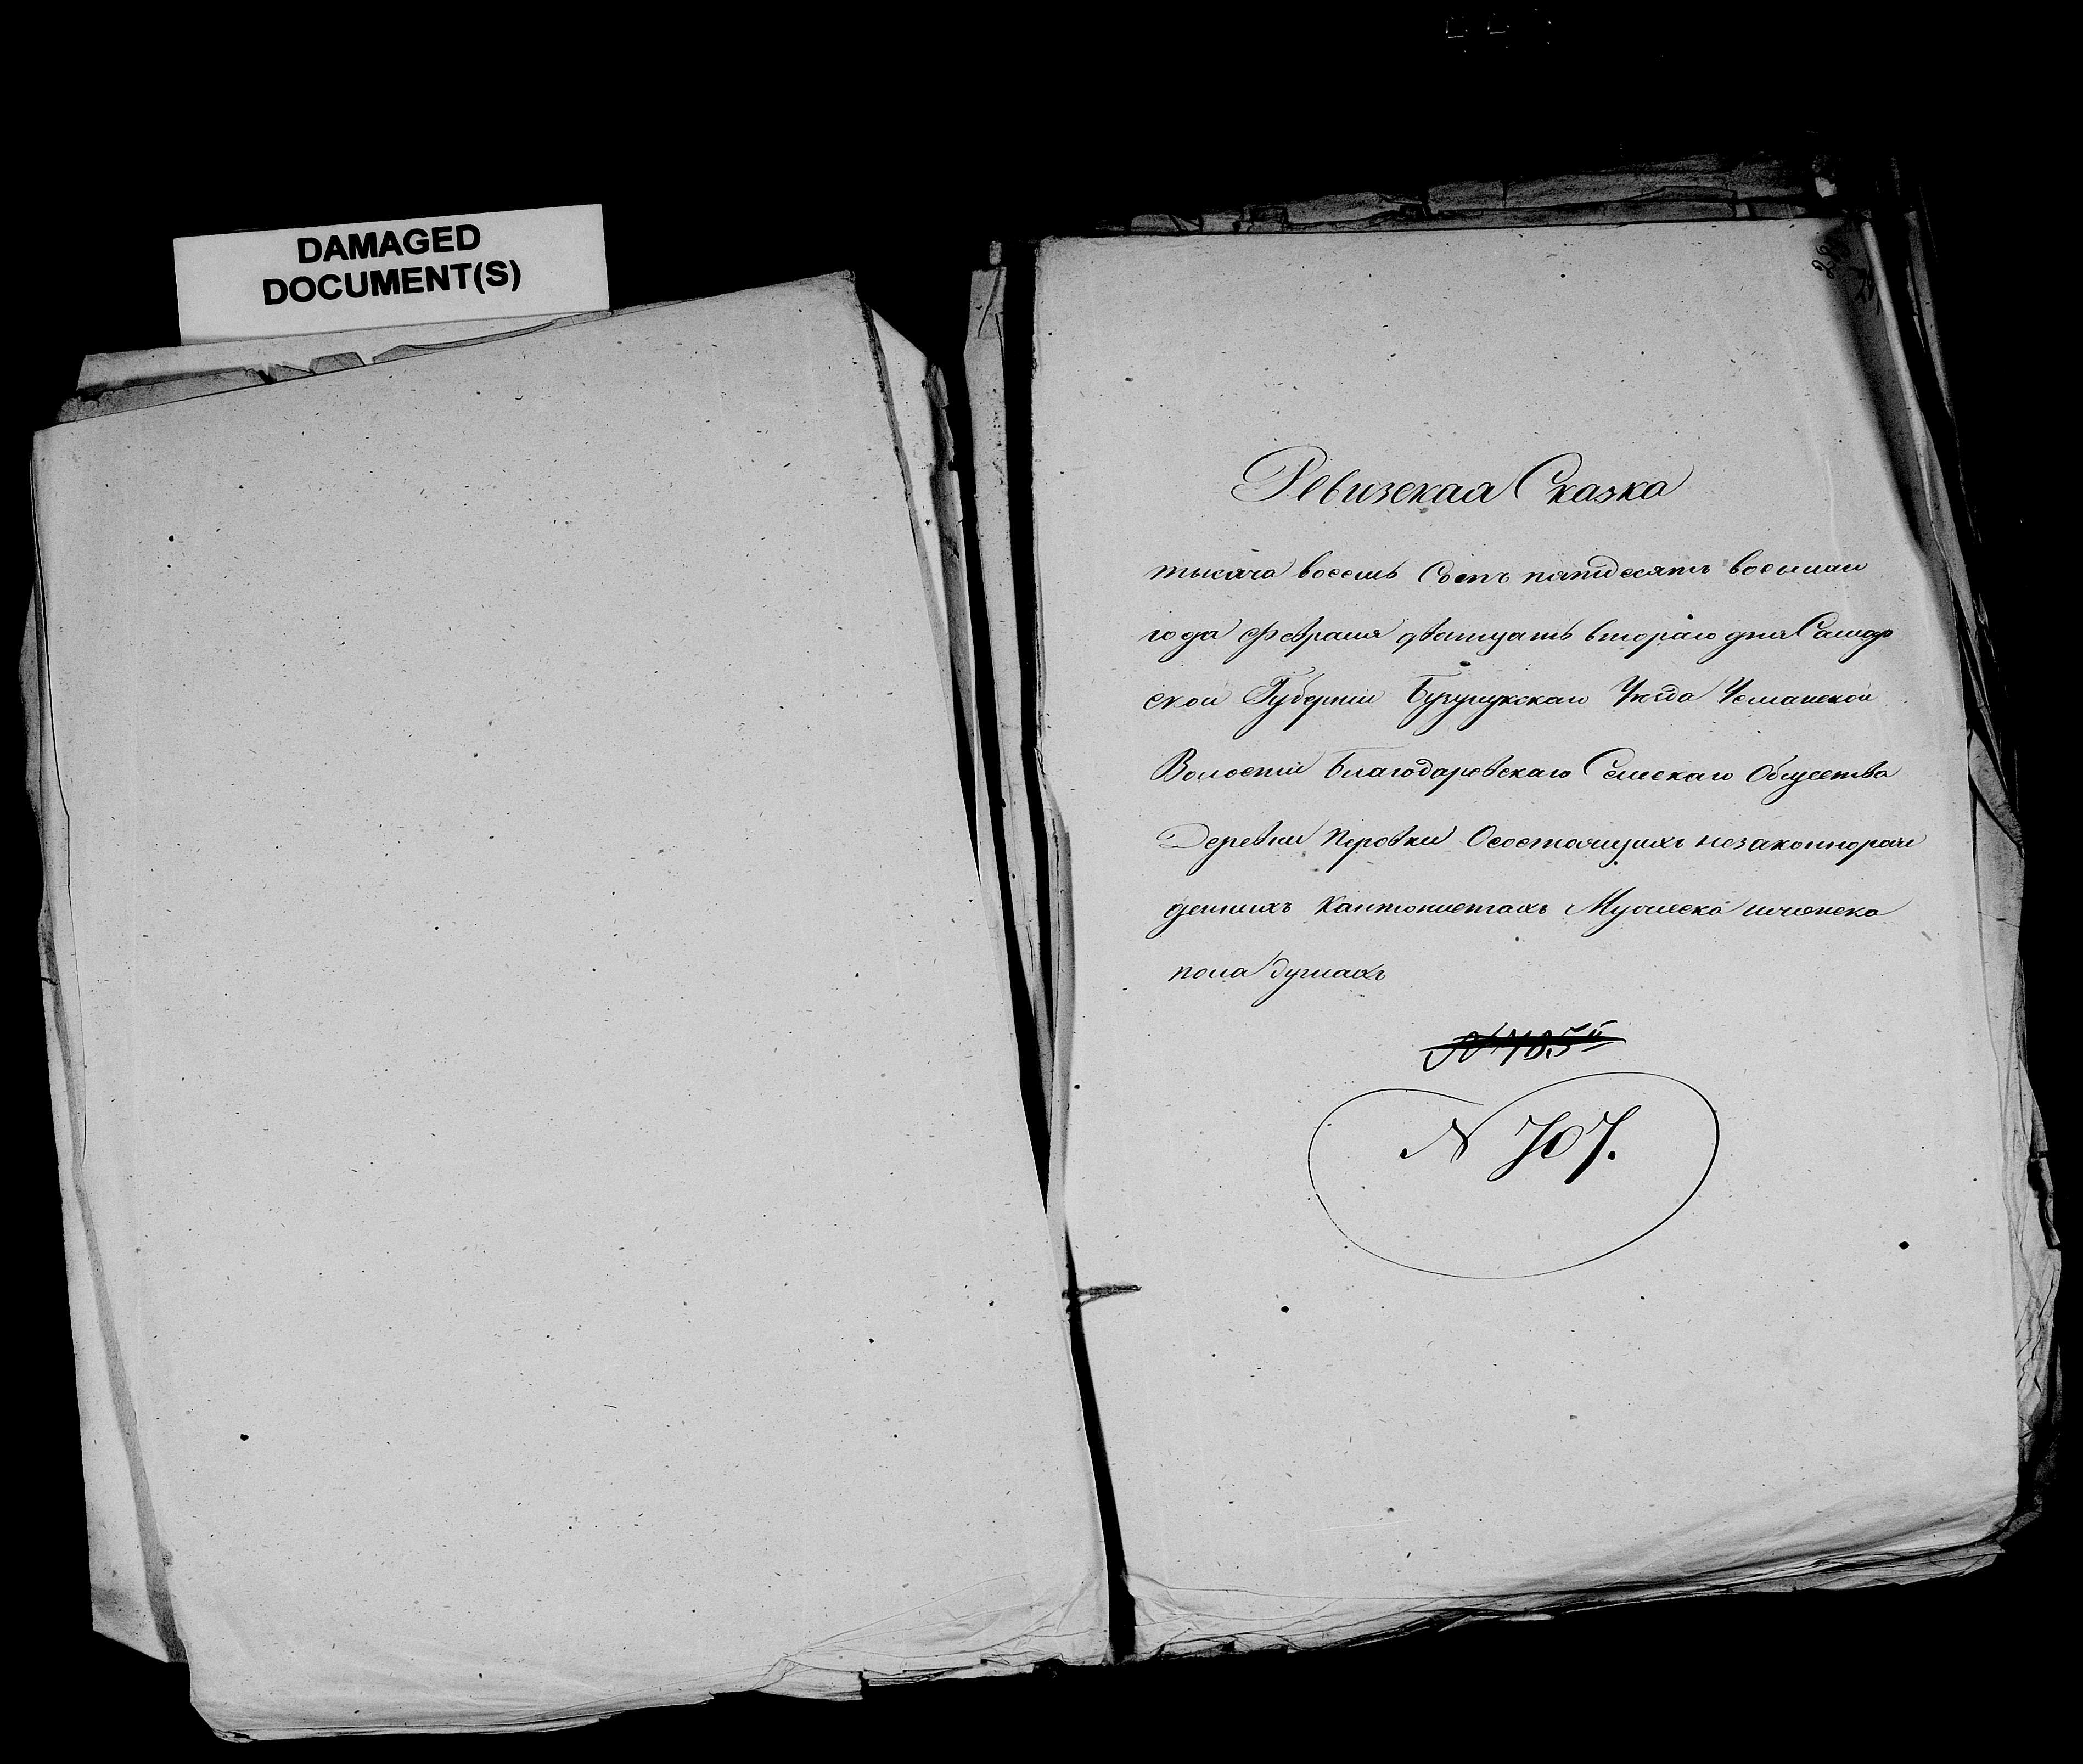 DAMAGED
DOCUMENT(S)
Ревизская Сказка
тысяча восемь Сотъ пятидесятъ восьмаго
года февраля дватцать втораго дня Самар
ской Губерніи Бузулукскаго Уѣзда
Волости Благодаровскаго Сельскаго Общества
Деревни Перовки Осостоящихъ незаконнорож
денныхъ Кантонистахъ Мужеска иженска
пола душахъ
N 707.